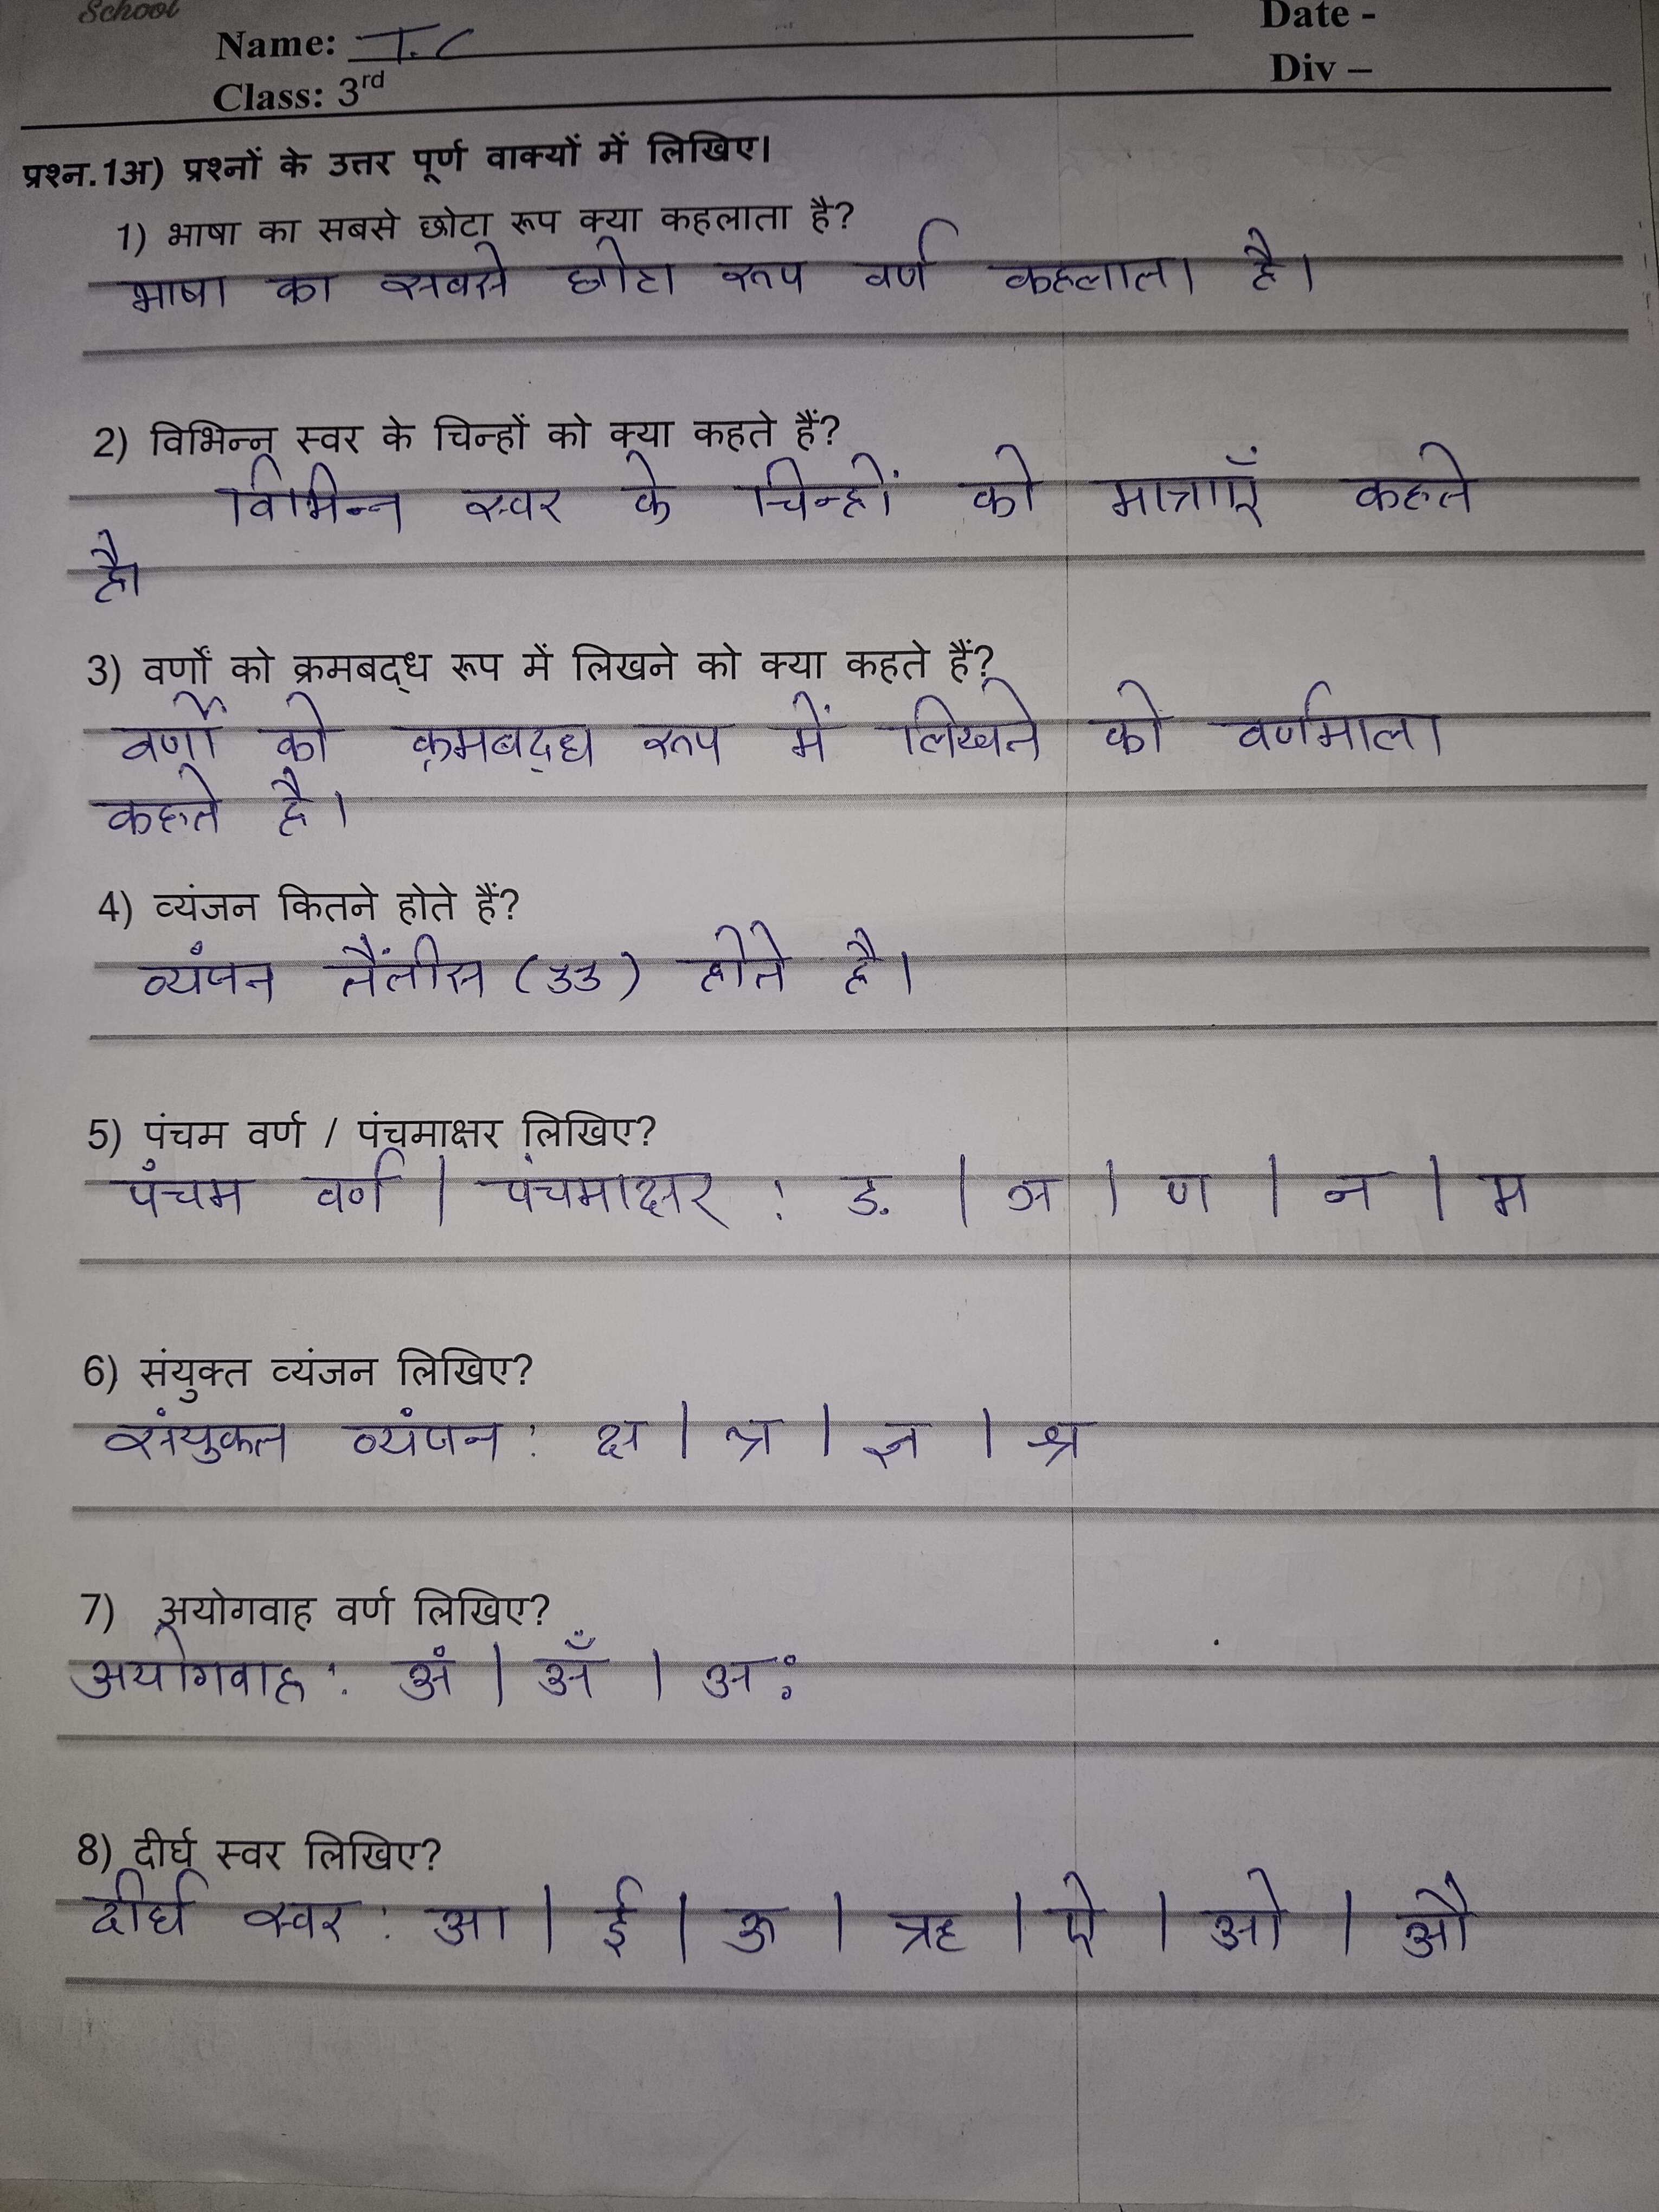 School
Name: T.C
Date -
Class: 3rd
Div –
प्रश्न.1अ) प्रश्नों के उत्तर पूर्ण वाक्यों में लिखिए।
1) भाषा का सबसे छोटा रूप क्या कहलाता है?
भाषा का सबसे छोटा रूप वर्ण कहलाता है।
2) विभिन्न स्वर के चिन्हों को क्या कहते हैं?
विभिन्न स्वर के चिन्हों को मात्राएँ कहते
है।
3) वर्णों को क्रमबद्ध रूप में लिखने को क्या कहते हैं?
वर्णों को क्रमबद्ध रूप में लिखने को वर्णमाला
कहते है।
4) व्यंजन कितने होते हैं?
व्यंजन तैंतीस (33) होते है।
5) पंचम वर्ण / पंचमाक्षर लिखिए?
पंचम वर्ण | पंचमाक्षर : ङ | ञ | ण | न | म
6) संयुक्त व्यंजन लिखिए?
संयुक्त व्यंजन : क्ष | त्र | ज्ञ | श्र
7) अयोगवाह वर्ण लिखिए?
अयोगवाह : अं | अँ | अः
8) दीर्घ स्वर लिखिए?
दीर्घ स्वर : आ | ई | ऊ | ऋ | ऐ | ओ | औ